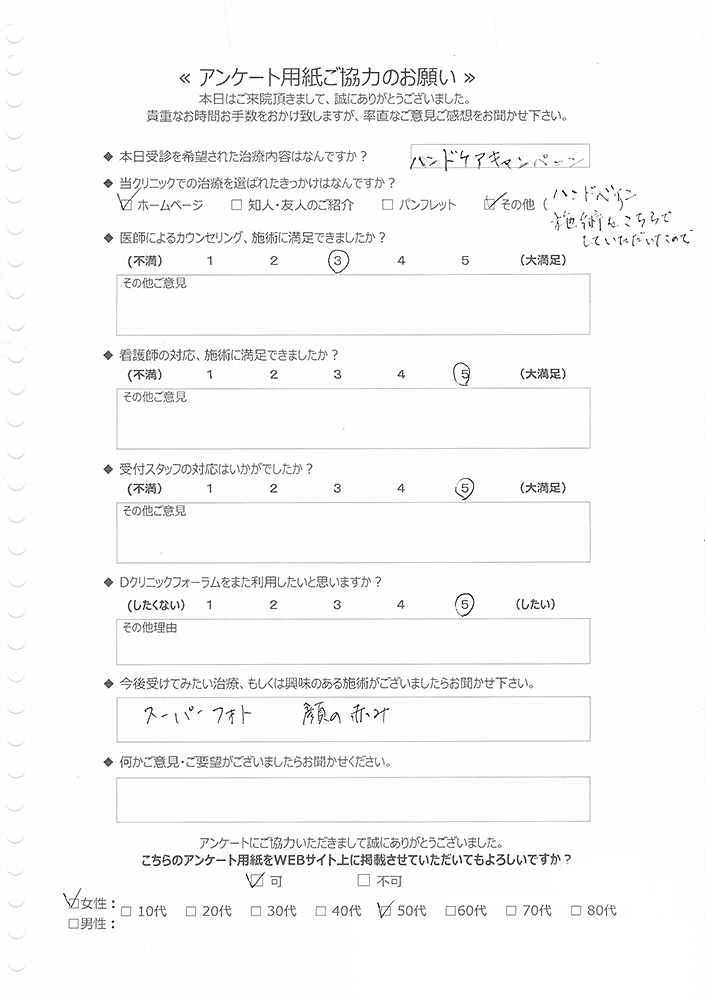 ≪ アンケート用紙ご協力のお願い ≫
本日はご来院頂きまして、誠にありがとうございました。
貴重なお時間お手数をおかけ致しますが、率直なご意見ご感想をお聞かせ下さい。
◆ 本日受診を希望された治療内容はなんですか？ ハンドケアキャンペーン
◆ 当クリニックでの治療を選ばれたきっかけはなんですか？
☑ ホームページ □ 知人・友人のご紹介 □ パンフレット ☑ その他 ( ハンドベイン
施術をこちらで
していただいたので
◆ 医師によるカウンセリング、施術に満足できましたか？
(不満) 1 2 ③ 4 5 (大満足)
その他ご意見
◆ 看護師の対応、施術に満足できましたか？
(不満) 1 2 3 4 ⑤ (大満足)
その他ご意見
◆ 受付スタッフの対応はいかがでしたか？
(不満) 1 2 3 4 ⑤ (大満足)
その他ご意見
◆ Dクリニックフォーラムをまた利用したいと思いますか？
(したくない) 1 2 3 4 ⑤ (したい)
その他理由
◆ 今後受けてみたい治療、もしくは興味のある施術がございましたらお聞かせ下さい。
スーパーフォト 顔の赤み
◆ 何かご意見・ご要望がございましたらお聞かせください。
アンケートにご協力いただきまして誠にありがとうございました。
こちらのアンケート用紙をWEBサイト上に掲載させていただいてもよろしいですか？
☑ 可 □ 不可
☑女性： □ 10代 □ 20代 □ 30代 □ 40代 ☑ 50代 □60代 □ 70代 □ 80代
□男性：